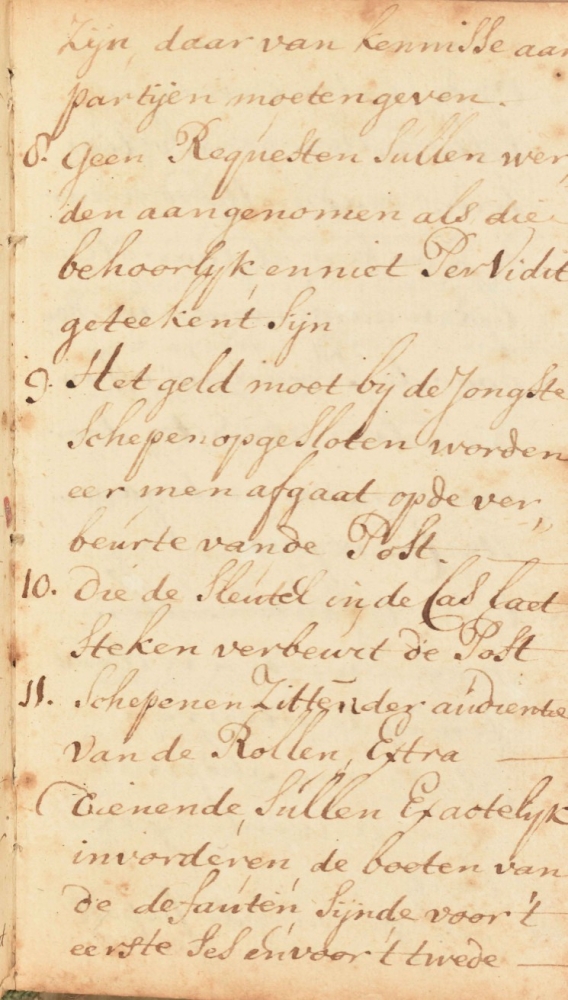 Zijn, daar van kennisse aan
partijen moeten geven.
8. Geen Requesten Sullen wer,
den aangenomen als die
behoorlijk, en niet Per Vidit
geteekent Sijn
9. Het geld moet bij de Jongste
Schepen opgesloten worden
eer men afgaat op de ver,
beurte van de Post.
10. Die de Sleutel in de Cas laet
Steken verbeurt de Post
11. Schepenen Zitten der audientie
van de Rollen, Extra
dienende, Sullen Exactelijk
invorderen de boeten van
de defauten Sijnde voor 't
eerste Ses en voor 't twede